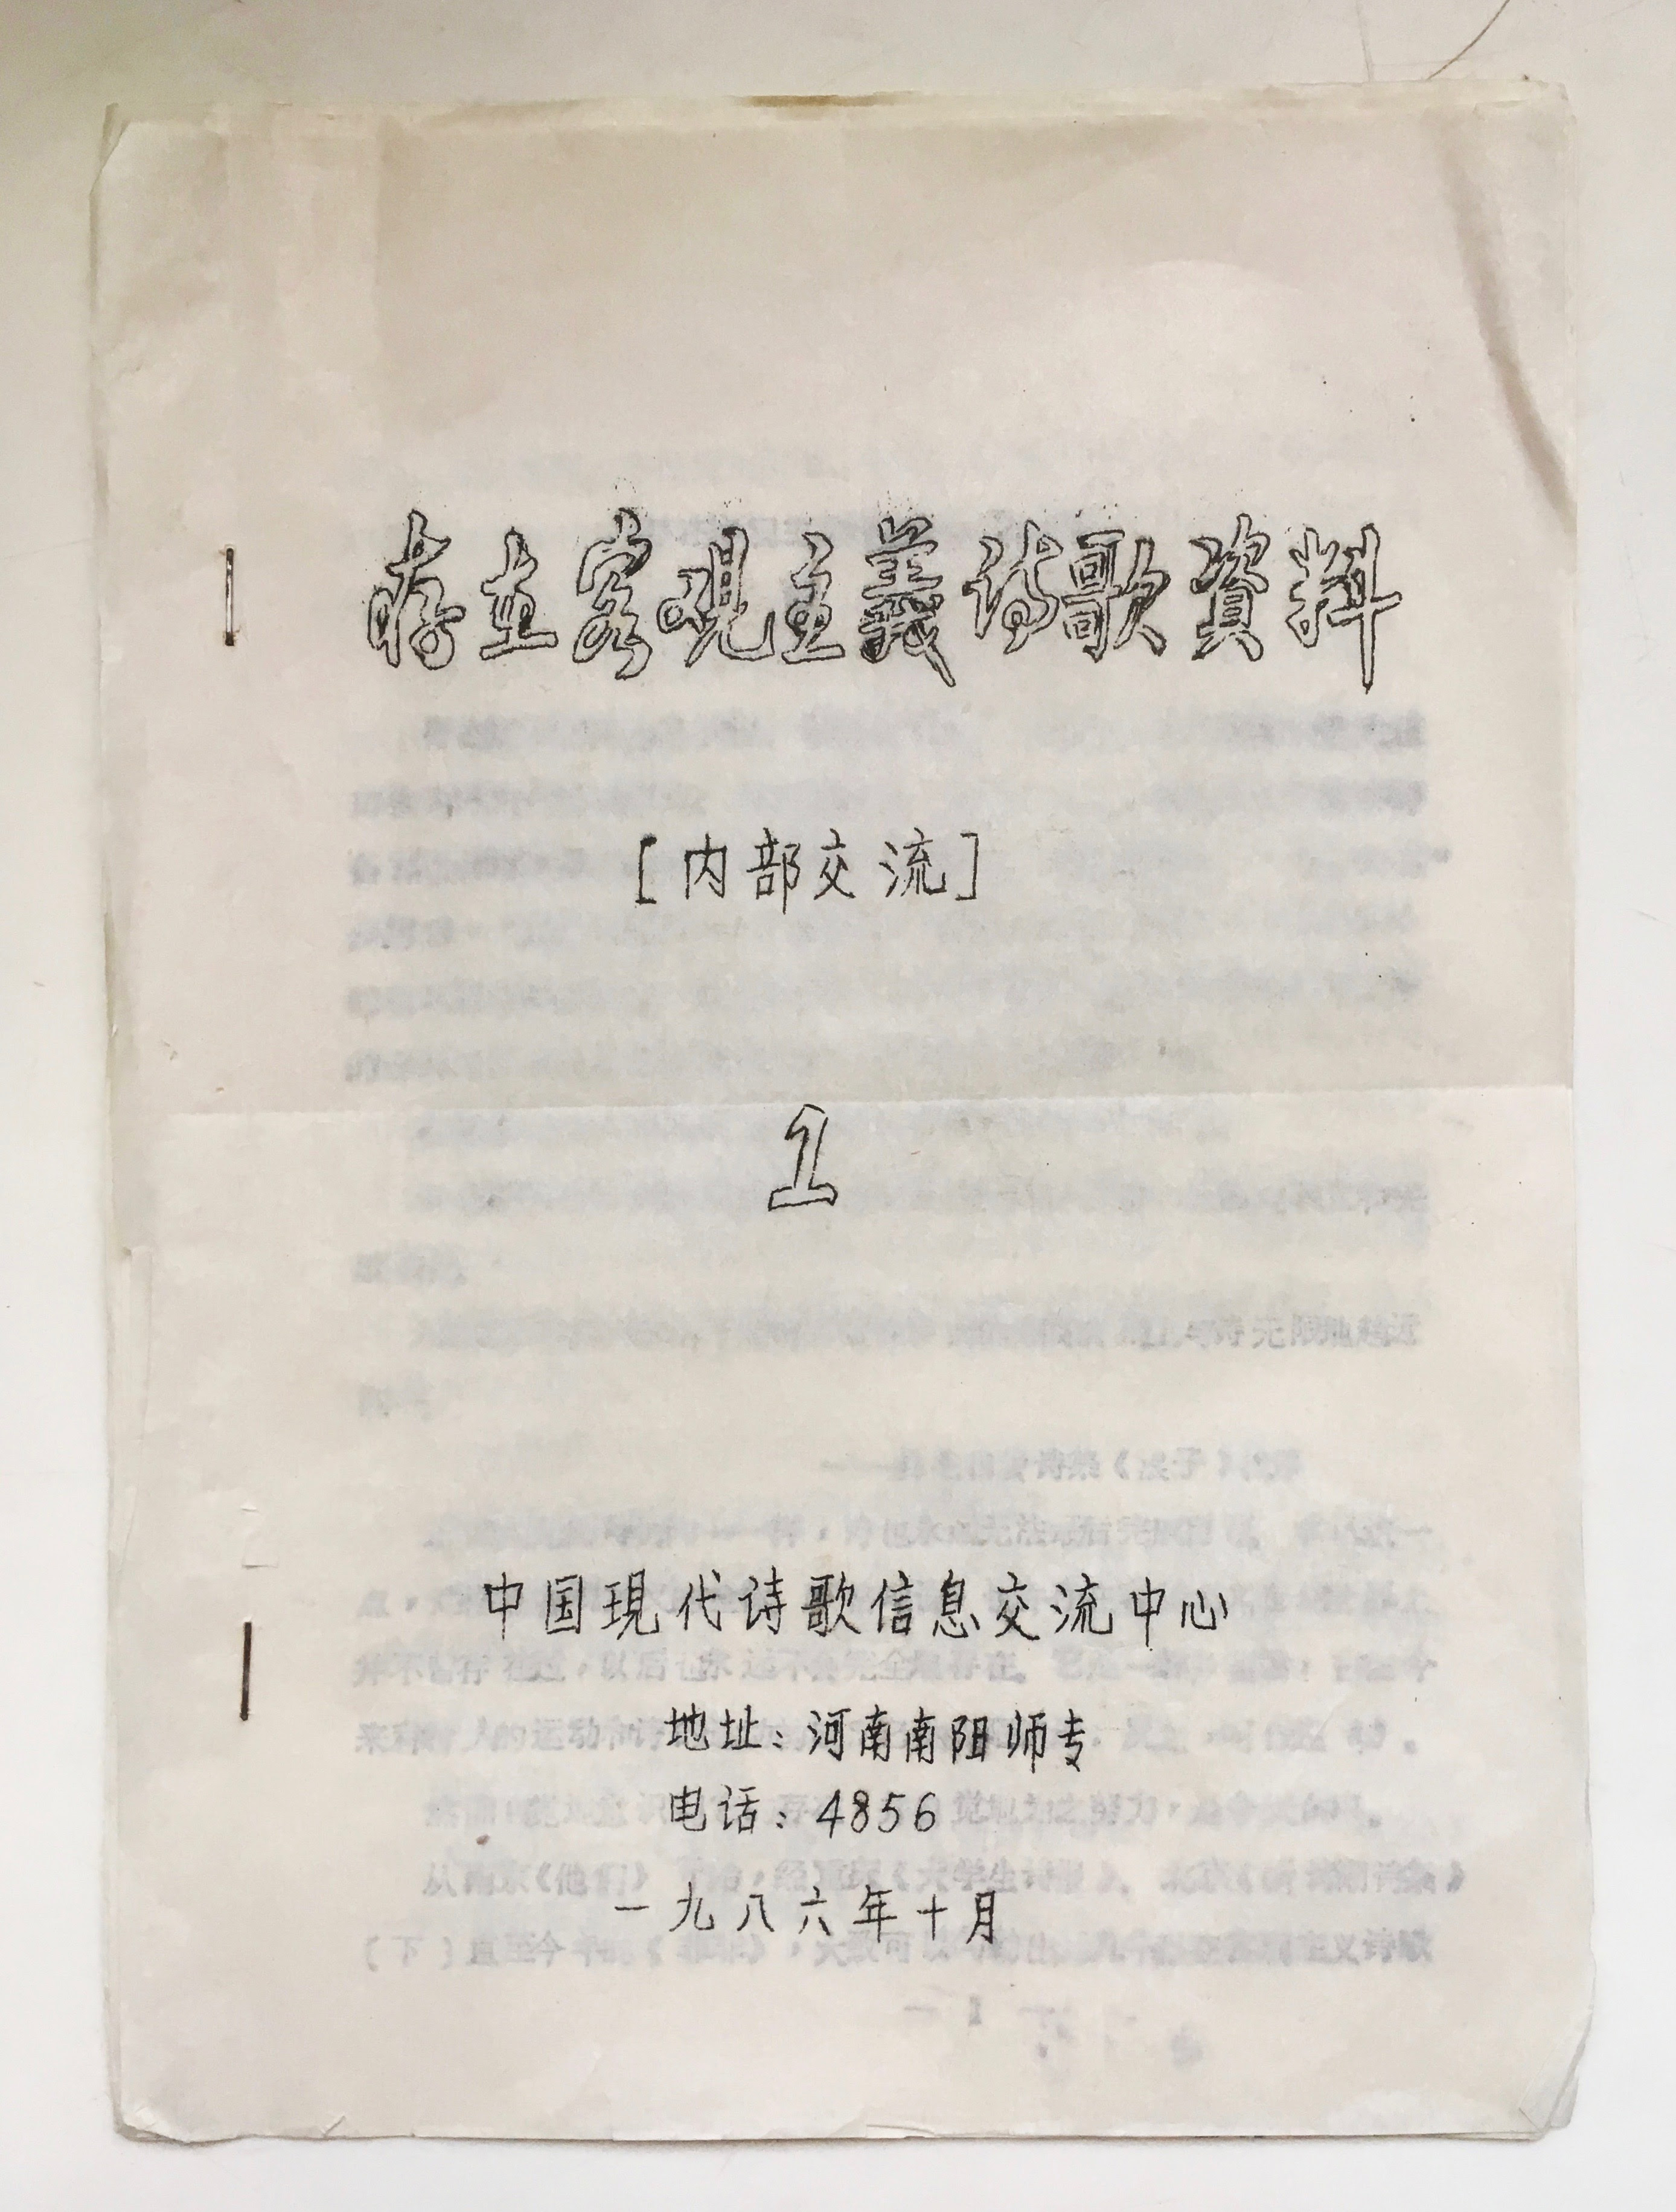 存在客观主義诗歌資料
[内部交流]
1
中国現代诗歌信息交流中心
地址：河南南阳师专
电话：4856
一九八六年十月